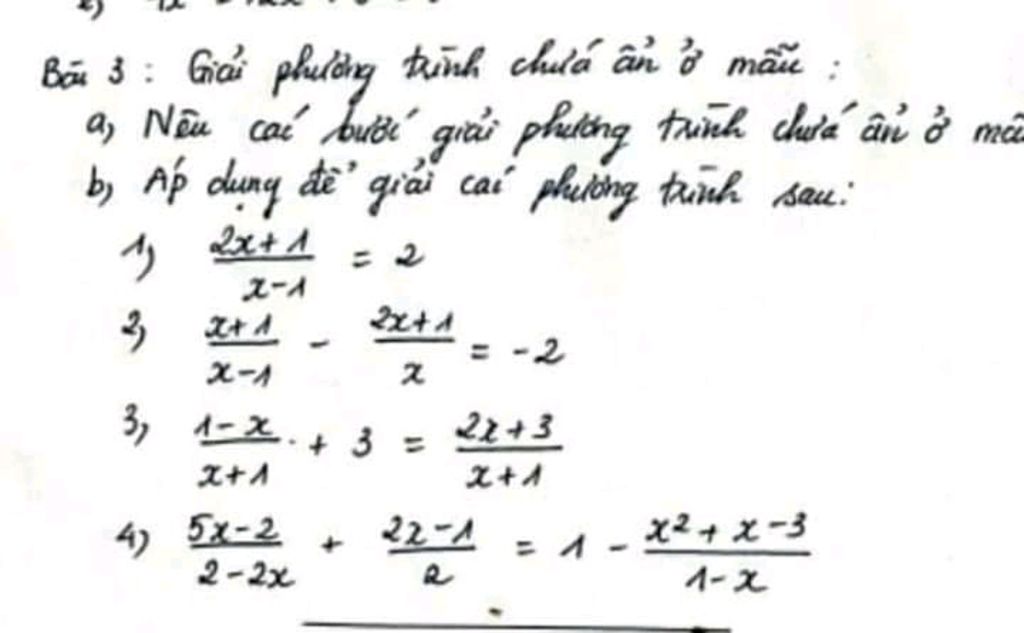 Bài 3 : Giải phương trình chứa ẩn ở mẫu :
a, Nêu các bước giải phương trình chứa ẩn ở
b, Áp dụng để giải các phương trình sau:
1, (2x+1)/(x-1) = 2
2, (x+1)/(x-1) - (2x+1)/x = -2
3, (1-x)/(x+1) + 3 = (2x+3)/(x+1)
4, (5x-2)/(2-2x) + (2x-1)/2 = 1 - (x²+x-3)/(1-x)